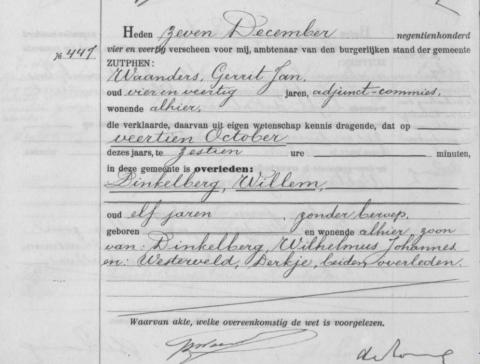 Heden zeven December negentienhonderd
No 447 vier en veertig verscheen voor mij, ambtenaar van den burgerlijken stand der gemeente
ZUTPHEN:
Waanders, Gerrit Jan,
oud vier en veertig jaren, adjunct-commies,
wonende alhier,
die verklaarde, daarvan uit eigen wetenschap kennis dragende, dat op
veertien October
dezes jaars, te zestien ure minuten,
in deze gemeente is overleden:
Dinkelberg, Willem,
oud elf jaren, zonder beroep,
geboren en wonende alhier, zoon
van: Dinkelberg, Wilhelmus Johannes
en: Westerveld, Derkje, beiden overleden.
Waarvan akte, welke overeenkomstig de wet is voorgelezen.